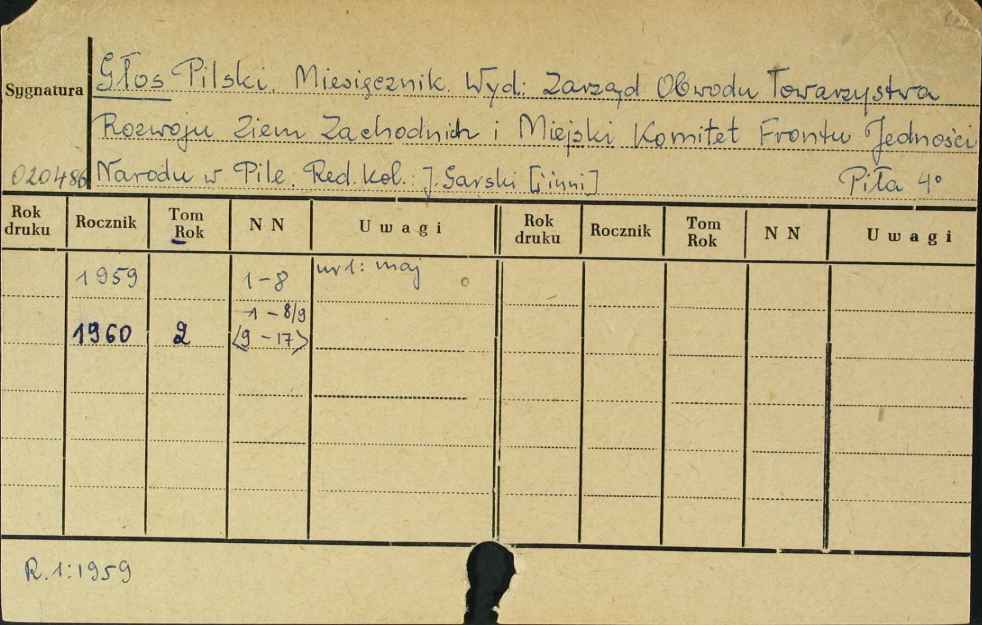 Sygnatura
Głos Pilski. Miesięcznik. Wyd: Zarząd Obwodu Towarzystwa
Rozwoju Ziem Zachodnich i Miejski Komitet Frontu Jedności
020486 Narodu w Pile. Red. kol.: J. Garski [i inni] Piła 4°
Rok druku Rocznik Tom Rok N N Uwagi Rok druku Rocznik Tom Rok N N Uwagi
1959 1-8 nr 1: maj
1960 2 1-8/9
<9-17>
R.1:1959